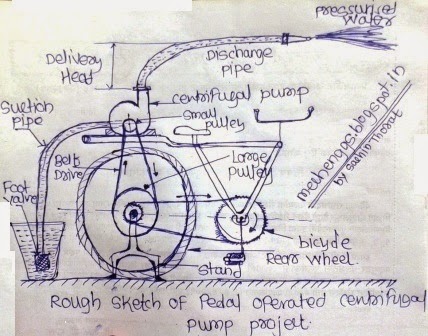 Pressurised
Water
Delivery
Head
Discharge
pipe
Suction
pipe
centrifugal pump
Small
pulley
Belt
Drive
Large
pulley
Foot
valve
bicycle
Rear wheel.
Stand
methengos.blogspot.in
by Sachin Thorat
Rough Sketch of Pedal operated centrifugal
pump project.